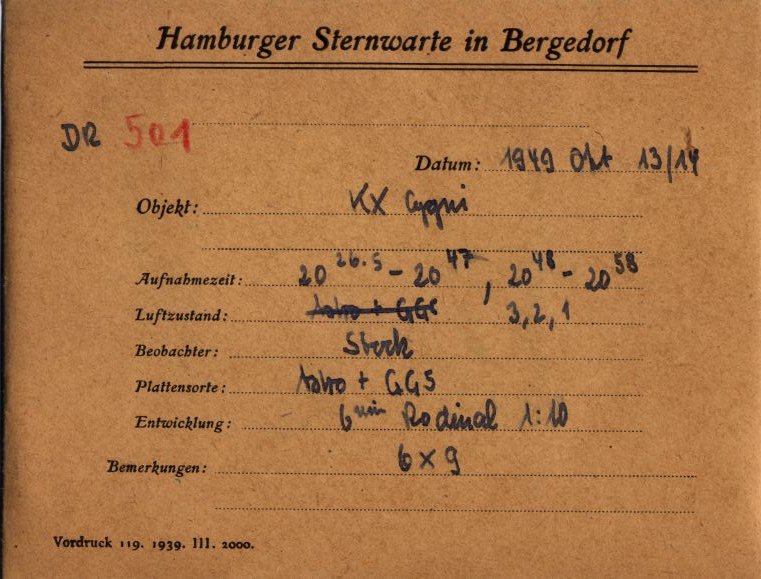 Hamburger Sternwarte in Bergedorf
DR 501
Datum: 1949 Okt 13/14
Objekt: KX Cygni
Aufnahmezeit: 20 26.5 - 20 47, 20 48 - 20 58
Luftzustand: Astro + GG5 3,2,1
Beobachter: Stock
Plattensorte: Astro + GG5
Entwicklung: 6 min Rodinal 1:10
Bemerkungen: 6 x 9
Vordruck 119. 1939. III. 2000.